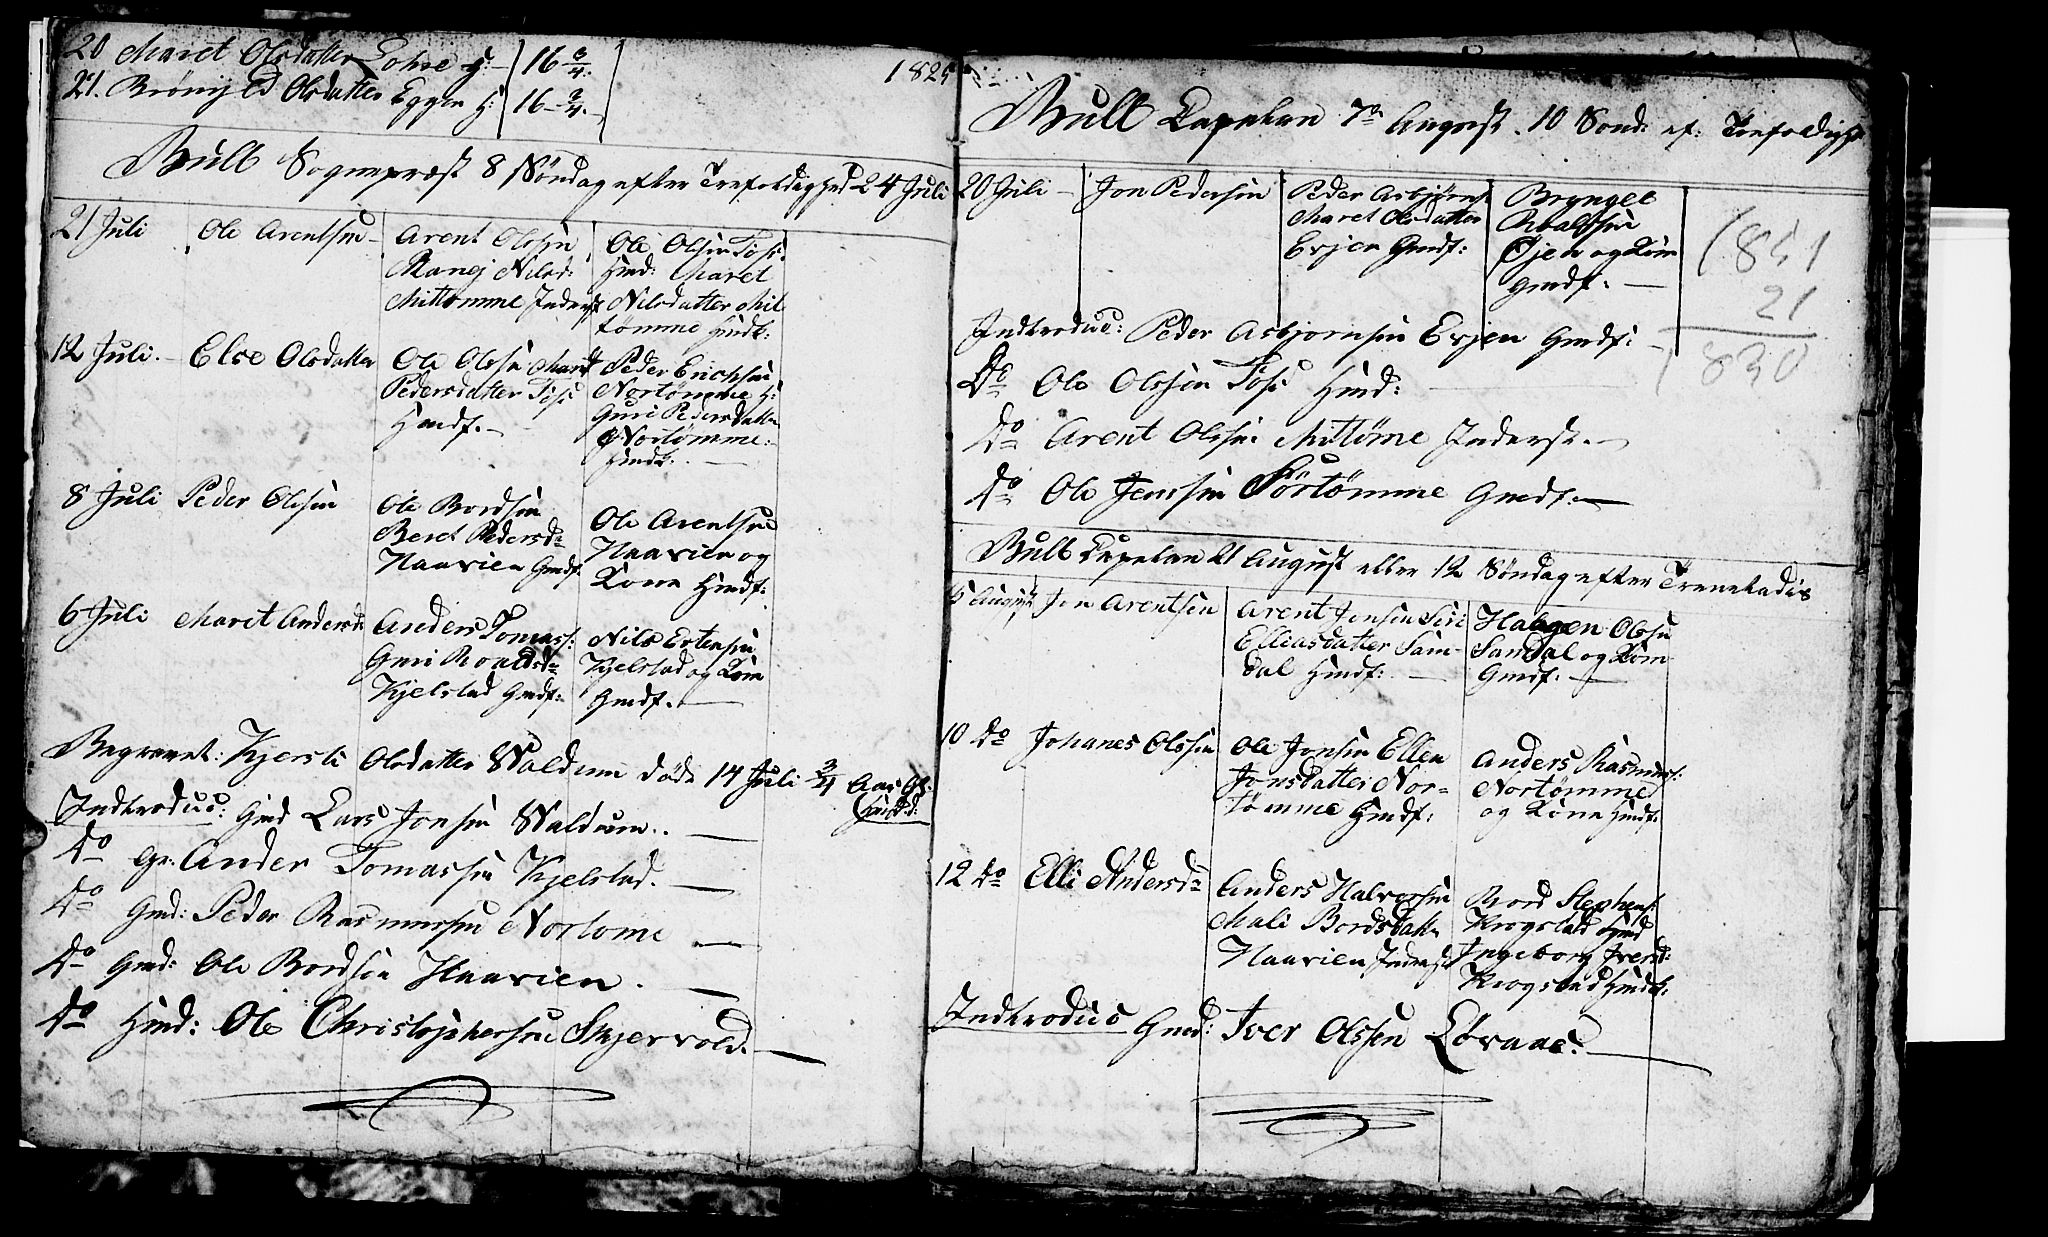 20 Maret Olsdatter Lohse G: 16 3/4.
21. Brönnj ed Olsdatter Eggen H: 16 - 3/4.
1825
Bull Sognepræst 8 Söndag efter Trefoldighed 24 Juli
21 Juli Ole Arentsen
Arent Olssen
Nilsd:
Mittömme Inderst
Ole Olssen Fosi
Hmd: Maret
Nilsdatter Mit
tömme gmdk:
12 Juli. Else Olsdatter
Ole Olssen Marit
Pedersdatter Fosi
Hmdf.
Peder Erichsen
Nortömme H:
Guri Pedersdatter
Nortömme:
Hmdk.
8 Juli Peder Olssen
Ole Bordsen
Beret Pedersd:
Haavien Gmdf.
Ole Arentsen
Haavien og
Kone Hmdf:
6 Juli Maret Andersd:
Anders Tomass:
Guri Roaldsd:
Kjelstad Gmdf:
Nils Estensen
Kjelstad og Kone
Gmdf.
Begravet: Kjersti Olsdatter Waldum döde 14 Juli 3/4 Aar Gl:
Indtroduc: Gmd Lars Jonsen Waldum.
Do Gr: Ander Tomassen Kjelstad.
Do Gmd: Peder Rasmussen Nortome
Do Gmd: Ole Bordsen Haavien.
Do Hmd: Ole Christophersen Skjervold.
Bull Capelan 7de August. 10 Sond: ef: Trefoldigh
20 Juli Jon Pedersen
Peder Asbjörns
Maret Olsdatter
Evjen Gmdf:
Bryngel
Roaldsen
Öjen og Kone
Gmdf.
851
21
830
Indtroduc: Peder Asbjornsen Evjen Gmdf:
Do Ole Olssen Fosi Hmd:
Do Arent Olssen Mittöme Inderst.
Do Ole Jenssen Sörtömme Gmdf.
Bull Capelan 21 August eller 12 Söndag efter Trenetadis
5 August Jon Arentsen
Arent Jonsen Siri
Elliasdatter Sam-
dal Hmdf:
Haagen Olssen
Samdal og Kone
Gmdf:
10 Do Johanes Olssen
Ole Jonsen Ellen
Jonsdatter Nor-
tömme Hmdf:
Anders Rasmuss:
Nortömme
og Kone Hmdf.
12 Do Elli Andersd:
Anders Halvorsen
Mali Bordsdatter
Haavien Inderst
Bord Stephens:
Krogstad Hmd
Ingeborg Iversd:
Krogstad Hmdk:
Indtroduc Gmd: Iver Olssen Lövaas.